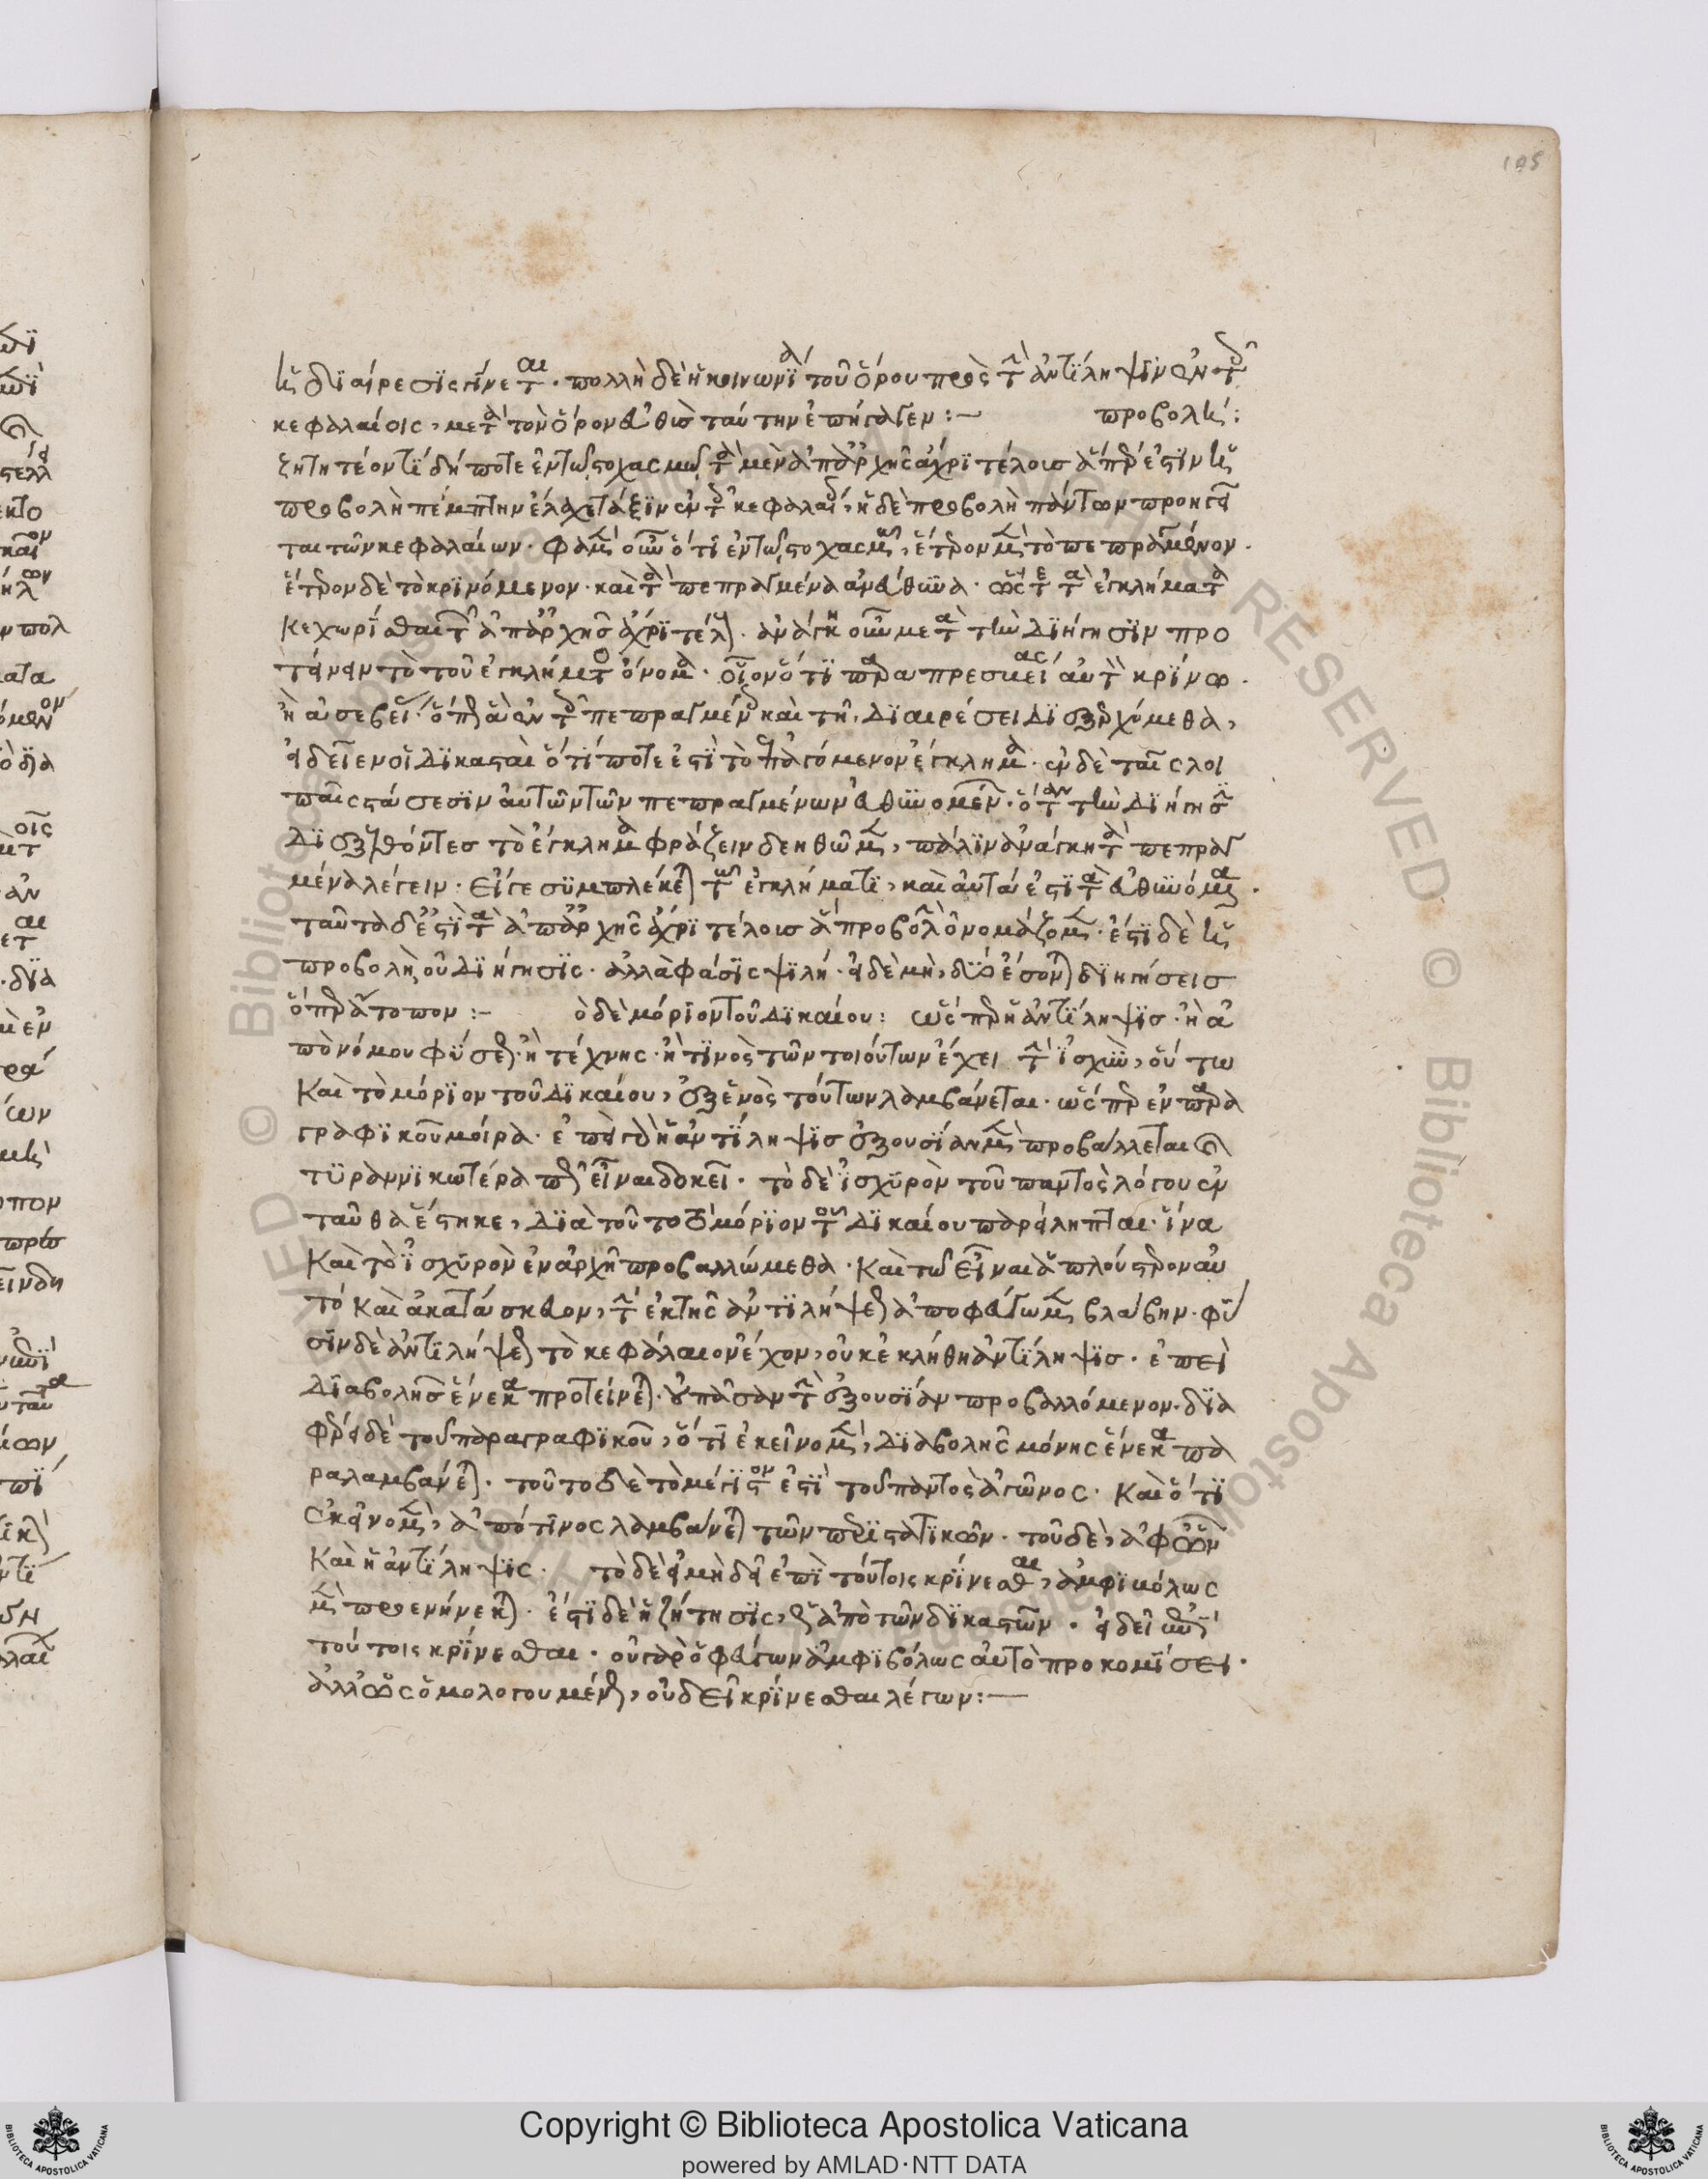 195
ἡ διαίρεσις γίνεται · πολλὴ δὲ ἡ κοινωνία τοῦ ὅρου πρὸς τὴν ἀντίληψιν ἐν τοῖς
κεφαλαίοις, μετὰ τὸν ὅρον εὐθὺς ταύτην ἐπήγαγεν :— προβολή :
ζητητέον τί δήποτε ἐν τῷ στοχασμῷ τὰ μὲν ἀπ' ἀρχῆς ἄχρι τέλους ἅπερ ἐστὶν ἡ
προβολὴ πέμπτην ἔλαχε τάξιν ἐν τοῖς κεφαλαίοις, ἡ δὲ προβολὴ πάντων προηγεῖ
ται τῶν κεφαλαίων · φαμὲν οὖν ὅτι ἐν τῷ στοχασμῷ, ἕτερον μὲν τὸ πεπραγμένον ·
ἕτερον δὲ τὸ κρινόμενον · καὶ τὰ πεπραγμένα ἀνεύθυνα · ὥστε τὰ ἐγκλήματα
κεχωρίσθαι τῶν ἀπ' ἀρχῆς ἄχρι τέλους · ἀνάγκη οὖν μετὰ τὴν διήγησιν προ
τείνειν τὸ τοῦ ἐγκλήματος ὄνομα · οἷον ὅτι παραπρεσβείας αὐτὸν κρίνω ·
ἢ ἀσεβείας · ὅπερ ἂν ἐν τοῖς πεπραγμένοις καὶ τῇ διαιρέσει διεξερχόμεθα,
εἰδεῖεν οἱ δικασταὶ ὅ τί ποτε ἐστὶ τὸ ἐπαγόμενον ἔγκλημα · ἐν δὲ ταῖς λοι
παῖς στάσεσιν αὐτῶν τῶν πεπραγμένων εὐθυνομένων · ὅταν τὴν διήγησιν
διεξελθόντες τὸ ἔγκλημα φράζειν δεηθῶμεν, πάλιν ἀνάγκη τὰ πεπραγ
μένα λέγειν · εἴγε συμπλέκεται τῷ ἐγκλήματι, καὶ αὐτά ἐστι τὰ εὐθυνόμενα ·
ταῦτα δέ ἐστι τὰ ἀπ' ἀρχῆς ἄχρι τέλους ἃ προβολὴν ὀνομάζομεν · ἔστι δὲ ἡ
προβολὴ, οὐ διήγησις · ἀλλὰ φάσις ψιλή · εἰ δὲ μὴ, δύο ἔσονται διηγήσεις
ὅπερ ἄτοπον :— ὁ δὲ μόριον τοῦ δικαίου : ὥσπερ ἡ ἀντίληψις · ἢ ἀ
πὸ νόμου φύσεως · ἢ τέχνης · ἤ τινος τῶν τοιούτων ἔχει τὴν ἰσχὺν, οὕτω
καὶ τὸ μόριον τοῦ δικαίου, ἐξ ἑνὸς τούτων λαμβάνεται · ὥσπερ ἐν παρα
γραφικοῦ μοίρα · ἐπεὶ γὰρ ἡ ἀντίληψις ἐξουσίαν μὲν προβάλλεται
τυραννικωτέρα πως εἶναι δοκεῖ · τὸ δὲ ἰσχυρὸν τοῦ παντὸς λόγου ἐν
ταῦθα ἕστηκε, διὰ τοῦτο τὸ μόριον τοῦ δικαίου παρείληπται · ἵνα
καὶ τὸ ἰσχυρὸν ἐν ἀρχῇ προβαλλώμεθα · καὶ τῷ εἶναι ἁπλούστερον αὐ
τό καὶ ἀκατάσκευον, τὴν ἐκ τῆς ἀντιλήψεως ἀποφεύγωμεν βλάβην · φύ
σιν δὲ ἀντιλήψεως τὸ κεφάλαιον ἔχον, οὐκ ἐκλήθη ἀντίληψις · ἐπεὶ
διαβολῆς ἕνεκα προτείνεται · οὐ πᾶσαν τὴν ἐξουσίαν προβαλλόμενον · δια
φέρει δὲ τοῦ παραγραφικοῦ, ὅτι ἐκεῖνο μὲν, διαβολῆς μόνης ἕνεκα πα
ραλαμβάνεται · τοῦτο δὲ τὸ μέγιστόν ἐστι τοῦ παντὸς ἀγῶνος · καὶ ὅτι
ἐκεῖνο μὲν, ἀπό τινος λαμβάνεται τῶν περιστατικῶν · τοῦ δὲ, ἀφ' ὧν
καὶ ἡ ἀντίληψις · τὸ δὲ εἰ μὴ δεῖ ἐπὶ τούτοις κρίνεσθαι, ἀμφιβόλως
μὲν προενήνεκται · ἔστι δὲ ἡ ζήτησις, ἡ ἀπὸ τῶν δικαστῶν · εἰ δεῖ ἐπὶ
τούτοις κρίνεσθαι · οὐ γὰρ ὁ φεύγων ἀμφιβόλως αὐτὸ προκομίσει ·
ἀλλ' ὡς ὁμολογουμένως, οὐ δεῖ κρίνεσθαι λέγων :—
Copyright © Biblioteca Apostolica Vaticana
powered by AMLAD·NTT DATA